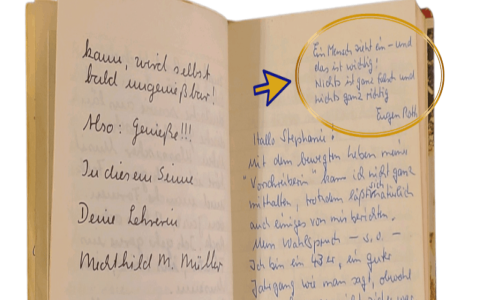 kann, wird selbst
bald ungenießbar!
Also: Genieße!!!
In diesem Sinne
Deine Lehrerin
Mechthild M. Müller
Ein Mensch sieht ein – und
das ist wichtig:
Nichts ist ganz falsch und
nichts ganz richtig
Eugen Roth
Hallo Stephanie!
Mit dem bewegten Leben meiner
"Vorschreiberin" kann ich nicht ganz
mithalten, trotzdem läßt sich natürlich
auch einiges von mir berichten.
Mein Wahlspruch – s.o. –
Ich bin ein 43er, ein guter
Jahrgang wie man sagt, obwohl